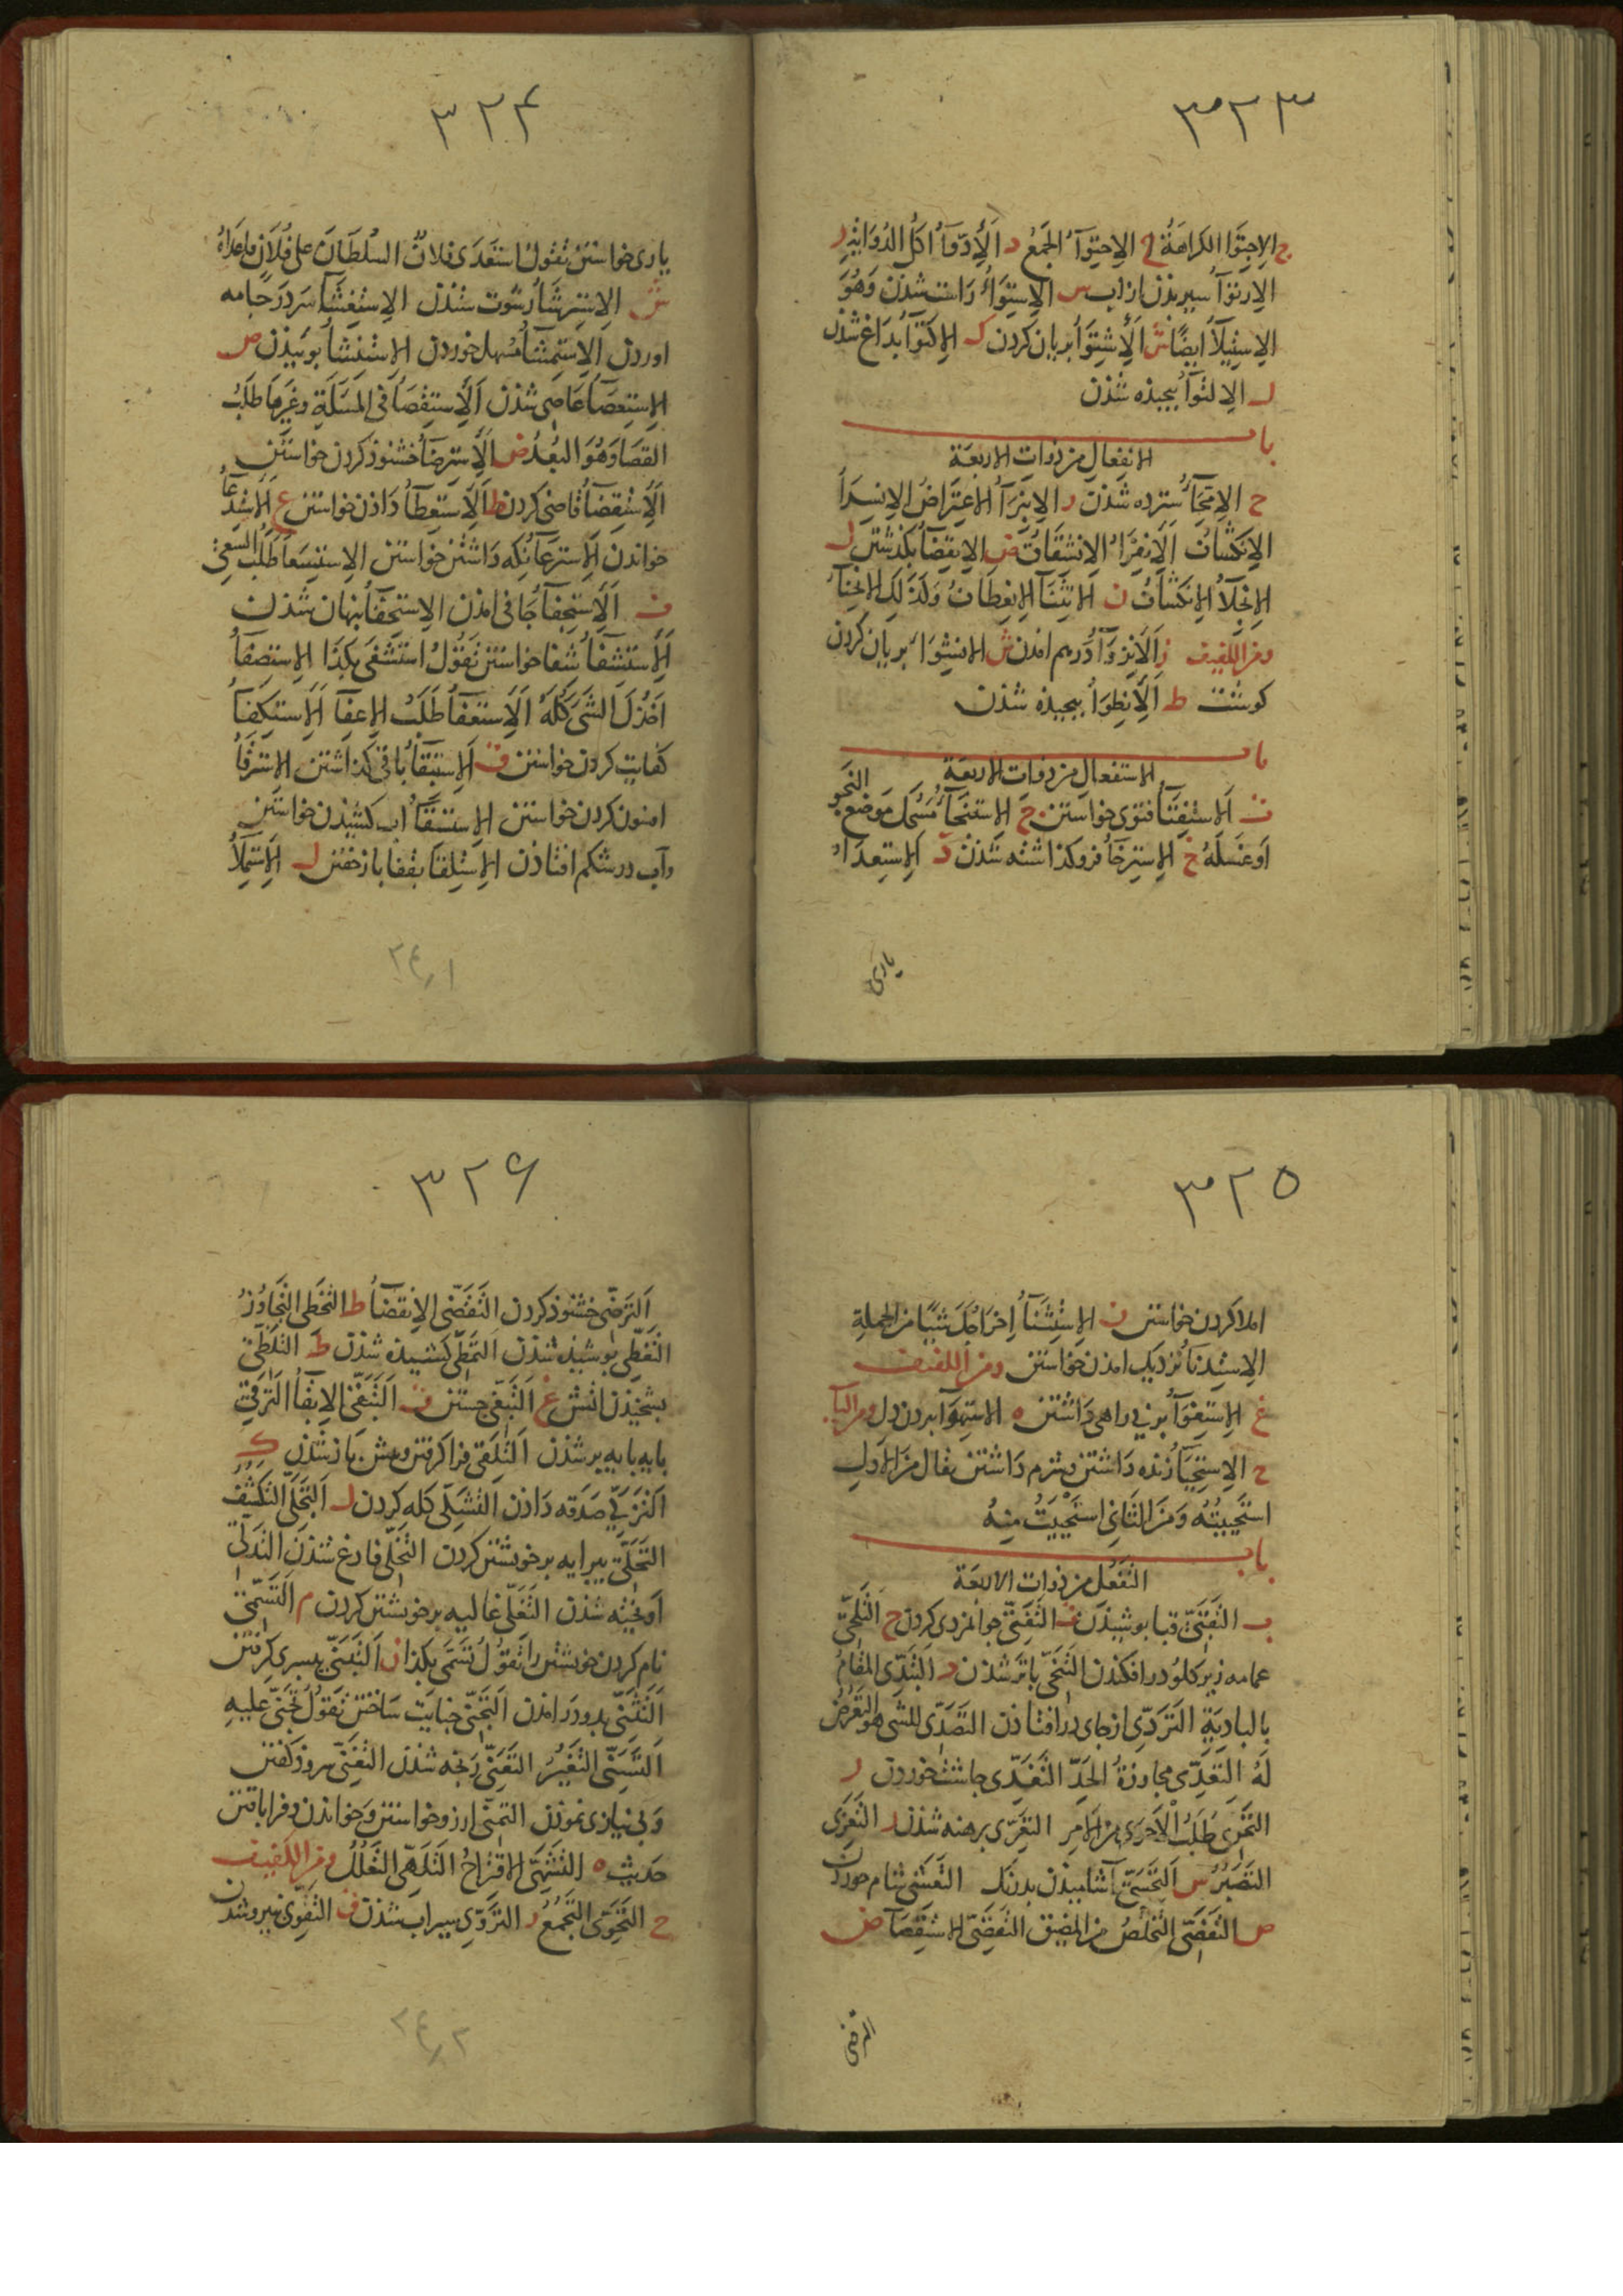 ٣٢٣
ج الاجتوا الكراهة ح الاحتوآ الجمع د الأدوآ اكل الدواية ر
الارتوآ سيريذن از اب س الاستوآ راست شذن وهو
الاستيلآ ايضًا ش الأشتوآ بريان كردن ك الاكتوآ بداغ شذن
ل الالتوآ بيجيذه شذن
باب
الانفعال من ذوات الاربعة
ح الامحآ سترده شذن ر الانبرآ الاعتراض الانسرآ
الانكشاف الانفرآ الانشقاق ض الانقضآ بكذشتن ل
الانجلآ الانكشاف ن الانثنآ الانعطاف وكذلك الانحنآ
ومن اللفيف ز الانزوآ درهم امذن ش الانشوآ بريان كردن
كوشت ط الانطوآ بيجيذه شذن
باب
الاستفعال من ذوات الاربعة
ت الاستفتآ فتوى خواستن ج الاستنجآ مسح موضع النجو
او غسله خ الاسترخآ فروكذاشته شذن د الاستعدآ
يارى
٣٢٤
يارى خواستن تقول استعدى فلان السلطان على فلان فاعداه
ش الاسترشآ رشوت ستذن الاستغشآ سر در جامه
اوردن الاستمشآ مسهل خوردن الاستنشآ بوييذن ص
الاستعصآ عاصى شذن الاستقصآ فى المسلة وغيرها طلب
القصا وهو البعد ض الاسترضآ خشنوذ كردن خواستن
الاستقضآ قاضى كردن ط الاستعطآ داذن خواستن ع الاستدعآ
خواندن الاسترعآ نكه داشتن خواستن الاستسعآ طلب السعى
ف الاستجفآ جافى امذن الاستخفآ بنهان شذن
الاستشفآ شفا خواستن تقول استشفى بكذا الاستصفآ
اخذك الشى كله الاستعفآ طلب الاعفآ الاستكفآ
كفايت كردن خواستن ق الاستبقآ باقى كذاشتن الاسترقآ
افسون كردن خواستن الاستسقآ اب كشيذن خواستن
وآب در شكم افتاذن الاستلقآ بقفا باز خفتن ل الاستملآ
٢٤١
٣٢٥
املا كردن خواستن ن الاستثنآ اخراجك شيئا من الجملة
الاستدنآ نزديك امذن خواستن ومن اللفيف
غ الاستغوآ بر بى راهى داشتن ه الاستهوآ بردن دل ومن اليآ
ح الاستحيآ زنده داشتن وشرم داشتن يقال من الاول
استحييته ومن الثانى استحييت منه
باب
التفعل من ذوات الاربعة
ب التقبى قبا بوشيذن ت التفتى جوانمردى كردن ح التلحى
عمامه زير كلو در افكندن التنحى باز شذن د التبدى المقام
بالبادية التردى از جاى در افتاذن التصدى للشى هو التعرض
له التعدى مجاوزة الحد التغدى جاشت خوردن ر
التحرى طلب الاحرى من الامر التعرى برهنه شذن ز التعزى
التصبر س التحسى آشاميذن بدرنك التعشى شام خوردن
ص التفصى التخلص من المضيق التقصى الاستقصآ ض
الترضى
٣٢٦
الترضى خشنوذ كردن التقضى الانقضآ ط التخطى التجاوز
التغطى بوشيذه شذن التمطى كشيذه شذن ظ التلظى
بشخيذن اتش غ التبغى جستن ق التبقى الابقآ الترقى
بايه بايه بر شذن التلقى فرا كرفتن وبيش باز شذن ك
التزكى صدقه داذن التشكى كله كردن ل التجلى التكشف
التحلى بيرايه بر خويشتن كردن التخلى فارغ شذن التدلى
اويخته شذن التغلى غاليه بر خويشتن كردن م التسمى
نام كردن خويشتن را تقول تسمى بكذا ن التبنى بسرى كرفتن
التثنى بدو در امذن التجنى جنايت ساختن تقول تجنى عليه
التسنى التغير التعنى رنجه شذن التغنى سروذ كفتن
وبى نيازى نموذن التمنى ارزو خواستن وخواندن وفرا بافتن
حديث ه التشهى الاقتراح التلهى التعلل ومن اللفيف
ح التحوى التجمع ر التروى سيراب شذن ق التقوى نيرومند شدن
٢٤٢